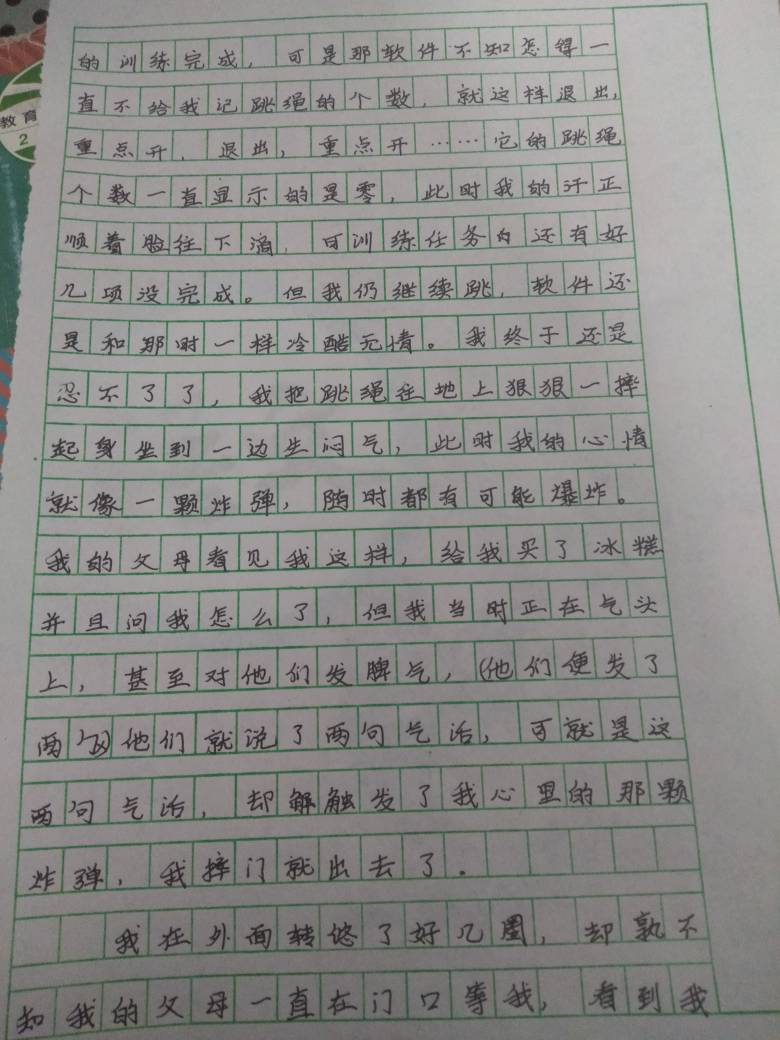 教育
2
的训练完成，可是那软件不知怎得一
直不给我记跳绳的个数，就这样退出，
重点开，退出，重点开……它的跳绳
个数一直显示的是零，此时我的汗正
顺着脸往下滴，可训练任务内还有好
几项没完成。但我仍继续跳，软件还
是和那时一样冷酷无情。我终于还是
忍不了了，我把跳绳往地上狠狠一摔
起身坐到一边生闷气，此时我的心情
就像一颗炸弹，随时都有可能爆炸。
我的父母看见我这样，给我买了冰糕
并且问我怎么了，但我当时正在气头
上，甚至对他们发脾气，(他们便发了
两句)他们就说了两句气话，可就是这
两句气话，却解触发了我心里的那颗
炸弹，我摔门就出去了.
我在外面转悠了好几圈，却孰不
知我的父母一直在门口等我，看到我